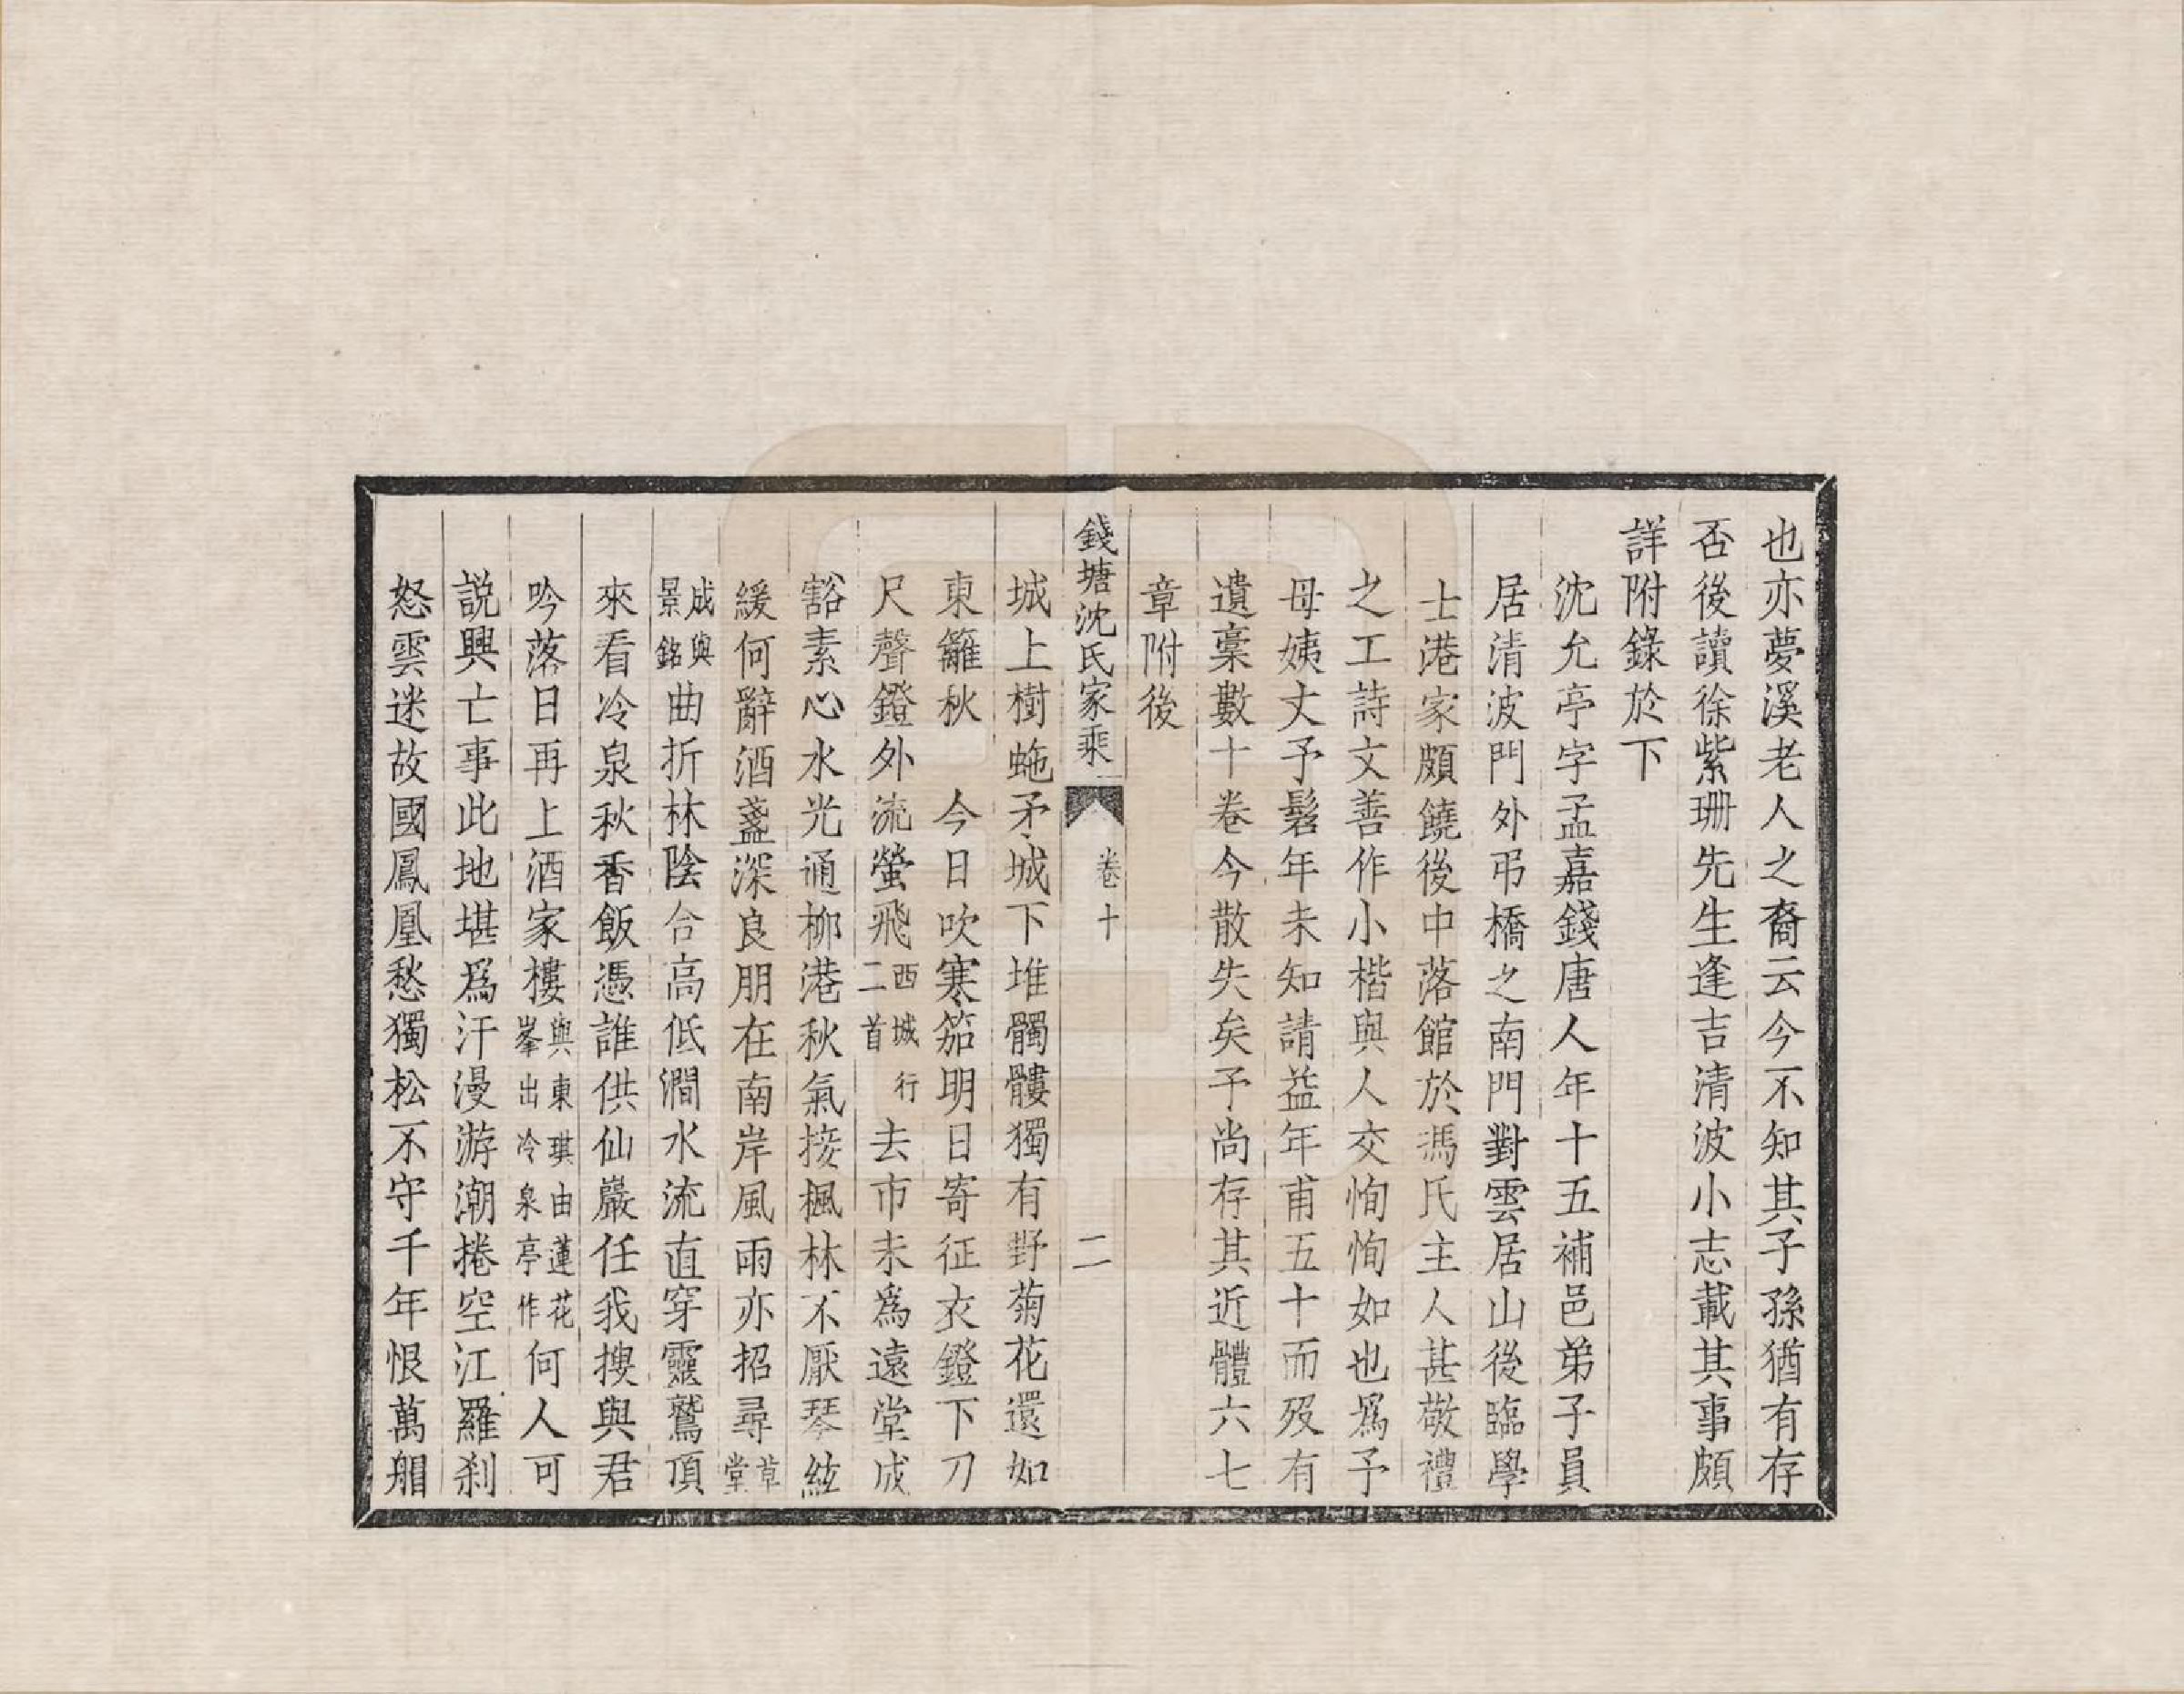 也亦夢溪老人之裔云今不知其子孫猶有存
否後讀徐紫珊先生逢吉清波小志載其事頗
詳附錄於下
沈允亭字孟嘉錢唐人年十五補邑弟子員
居清波門外弔橋之南門對雲居山後臨學
士港家頗饒後中落館於馮氏主人甚敬禮
之工詩文善作小楷與人交恂恂如也爲予
母姨丈予髫年未知請益年甫五十而歿有
遺稾數十卷今散失矣予尚存其近體六七
章附後
錢塘沈氏家乘
卷十
二
城上樹虵矛城下堆髑髏獨有野菊花還如
東籬秋　今日吹寒笳明日寄征衣鐙下刀
尺聲鐙外流螢飛西城行二首去市未爲遠堂成
豁素心水光通柳港秋氣接楓林不厭琴絃
緩何辭酒盞深良朋在南岸風雨亦招尋草堂
成與景銘曲折林陰合高低澗水流直穿靈鷲頂
來看冷泉秋香飯憑誰供仙巖任我搜與君
吟落日再上酒家樓與東琪由蓮花峯出冷泉亭作何人可
説興亡事此地堪爲汗漫游潮捲空江羅刹
怒雲迷故國鳳凰愁獨松不守千年恨萬艒